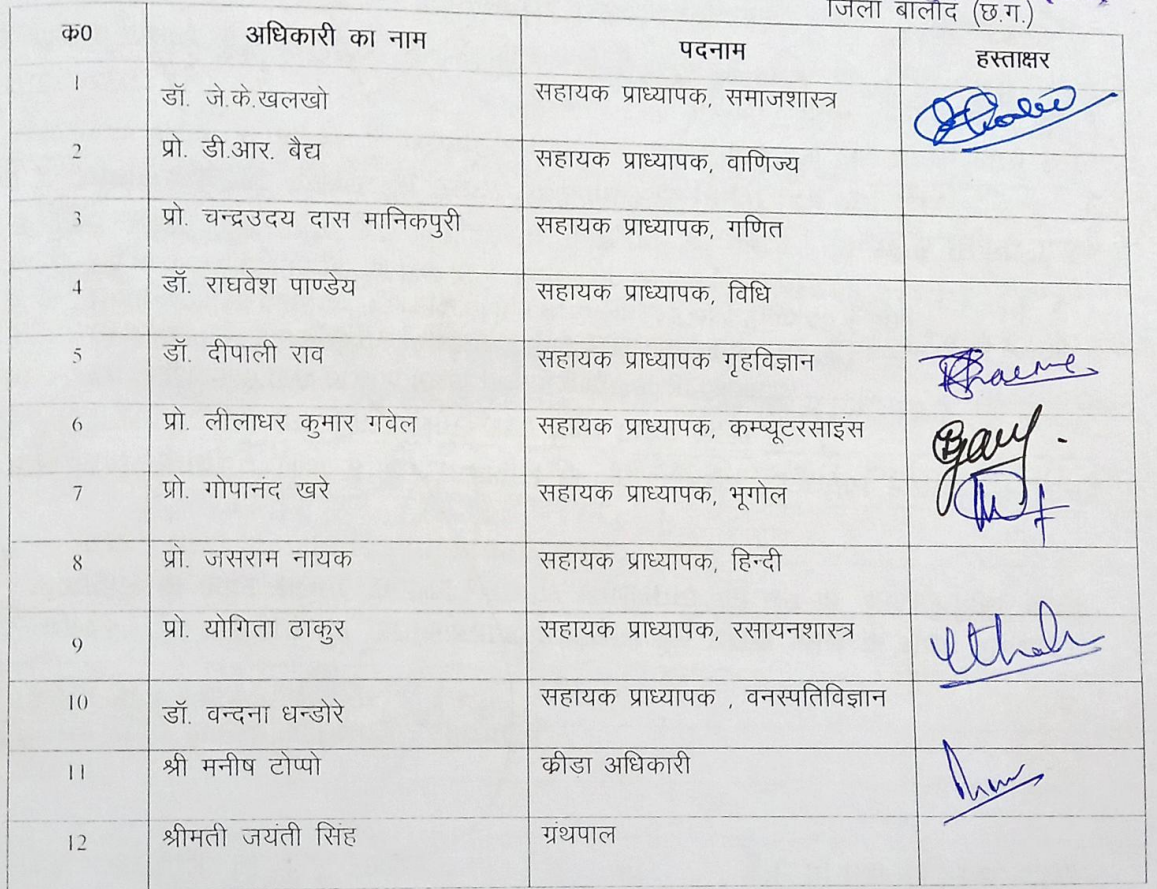 जिला बालोद (छ.ग.)
क0 अधिकारी का नाम पदनाम हस्ताक्षर
1 डॉ. जे.के.खलखो सहायक प्राध्यापक, समाजशास्त्र
2 प्रो. डी.आर. बैद्य सहायक प्राध्यापक, वाणिज्य
3 प्रो. चन्द्रउदय दास मानिकपुरी सहायक प्राध्यापक, गणित
4 डॉ. राघवेश पाण्डेय सहायक प्राध्यापक, विधि
5 डॉ. दीपाली राव सहायक प्राध्यापक गृहविज्ञान
6 प्रो. लीलाधर कुमार गवेल सहायक प्राध्यापक, कम्प्यूटरसाइंस
7 प्रो. गोपानंद खरे सहायक प्राध्यापक, भूगोल
8 प्रो. जसराम नायक सहायक प्राध्यापक, हिन्दी
9 प्रो. योगिता ठाकुर सहायक प्राध्यापक, रसायनशास्त्र
10 डॉ. वन्दना धन्डोरे सहायक प्राध्यापक , वनस्पतिविज्ञान
11 श्री मनीष टोप्पो क्रीडा अधिकारी
12 श्रीमती जयंती सिंह ग्रंथपाल